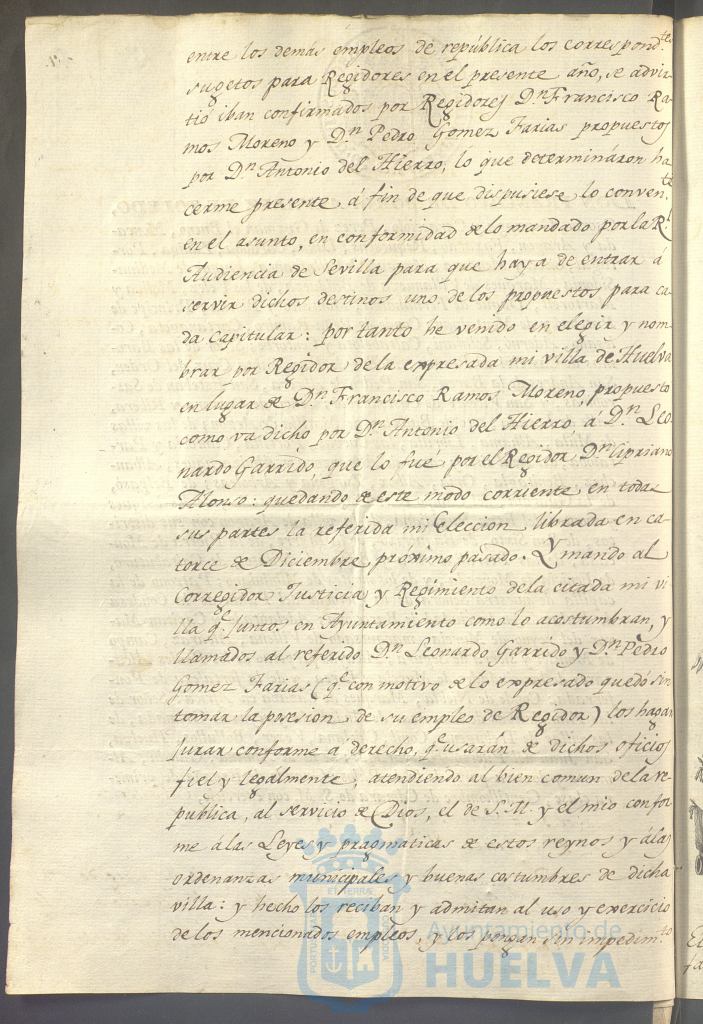 entre los demás empleos de república los correspond.tes
sugetos para Regidores en el presente año, se advir-
tió iban confirmados por Regidores D.n Francisco Ra-
mos Moreno y D.n Pedro Gomez Farias propuestos
por D.n Antonio del Hierro, lo que determináron ha-
cerme presente á fin de que dispusiese lo conven.te
en el asunto, en conformidad de lo mandado por la R.l
Audiencia de Sevilla para que haya de entrar á
servir dichos destinos uno de los propuestos para ca-
da Capitular: por tanto he venido en elegir y nom-
brar por Regidor de la expresada mi villa de Huelva
en lugar de D.n Francisco Ramos Moreno, propuesto
como va dicho por D.n Antonio del Hierro, á D.n Leo-
nardo Garrido, que lo fué por el Regidor D.n Cipriano
Alonso: quedando de este modo corriente en todas
sus partes la referida mi Eleccion librada en ca-
torce de Diciembre proximo pasado. Y mando al
Corregidor Justicia y Regimiento de la citada mi vi-
lla q.e juntos en Ayuntamiento como lo acostumbran, y
llamados al referido D.n Leonardo Garrido y D.n Pedro
Gomez Farias (q.e con motivo de lo expresado quedó sin
tomar la posesion de su empleo de Regidor) los hagan
jurar conforme á derecho, q.e usarán de dichos oficios
fiel y legálmente, atendiendo al bien comun de la re-
publica, al servicio de Dios, el de S.M. y el mio confor-
me á las Leyes y pragmaticas de estos reynos y á las
ordenanzas municipales y buenas costumbres de dicha
villa: y hecho los reciban y admitan al uso y exercicio
de los mencionados empleos, y los pongan sin impedim.to
Ayuntamiento de
HUELVA